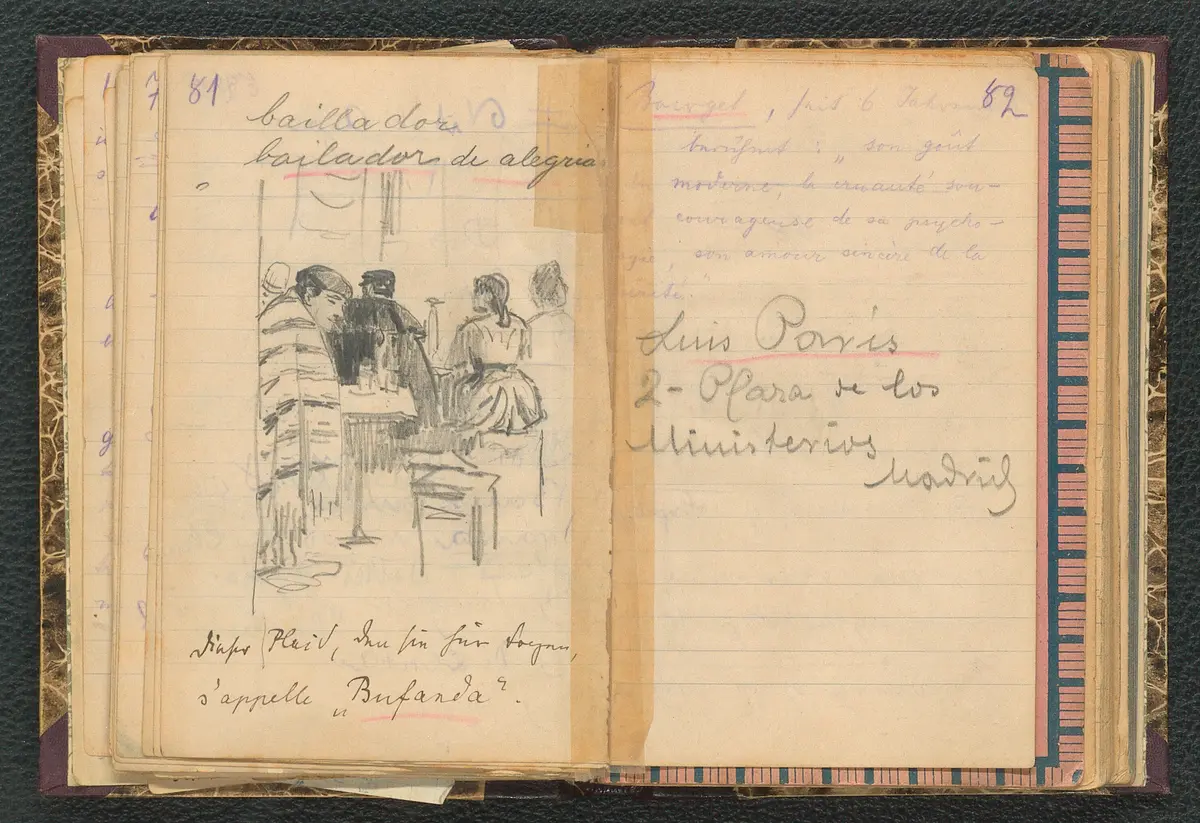 81
bailladores
bailadores de alegria
dieser Plaid, den sie hier tragen,
s'appelle „Bufanda“.
82
, seit 6 Jahren
berühmt : „son goût
moderne, la cruauté
courageuse de sa psycho-
gie, son amour sincère de la
vérité."
Luis París
2- Plaza de los
Ministerios
Madrid